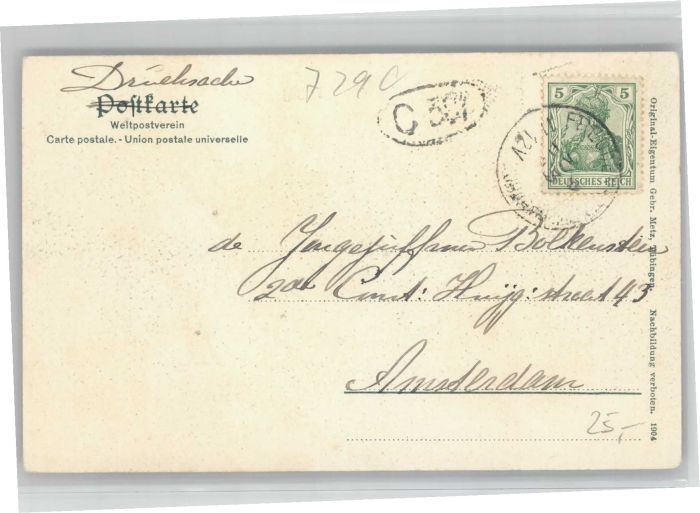 Drucksache
Postkarte
Weltpostverein
Carte postale. - Union postale universelle
7290
C
5 5
DEUTSCHES REICH
de Bolkenstein
2de Const: Huijg: straat 43
Amsterdam
25,-
Original-Eigentum Gebr. Metz, Tübingen. Nachbildung verboten. 1904